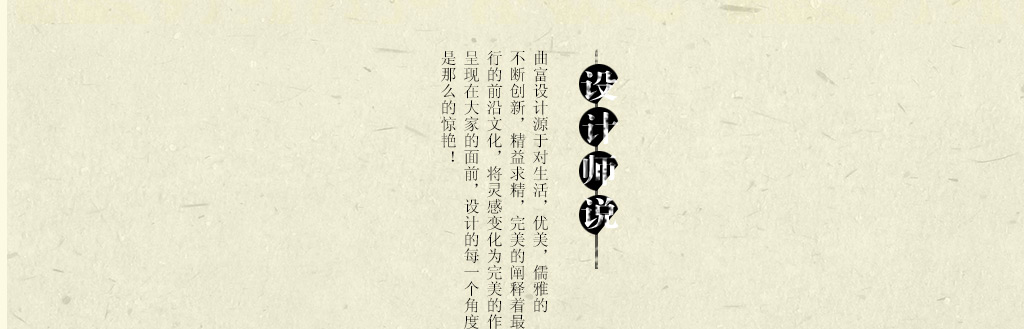 设计师说
曲富设计源于对生活，优美，儒雅的
不断创新，精益求精，完美的阐释着最
行的前沿文化，将灵感变化为完美的作
呈现在大家的面前，设计的每一个角度
是那么的惊艳！